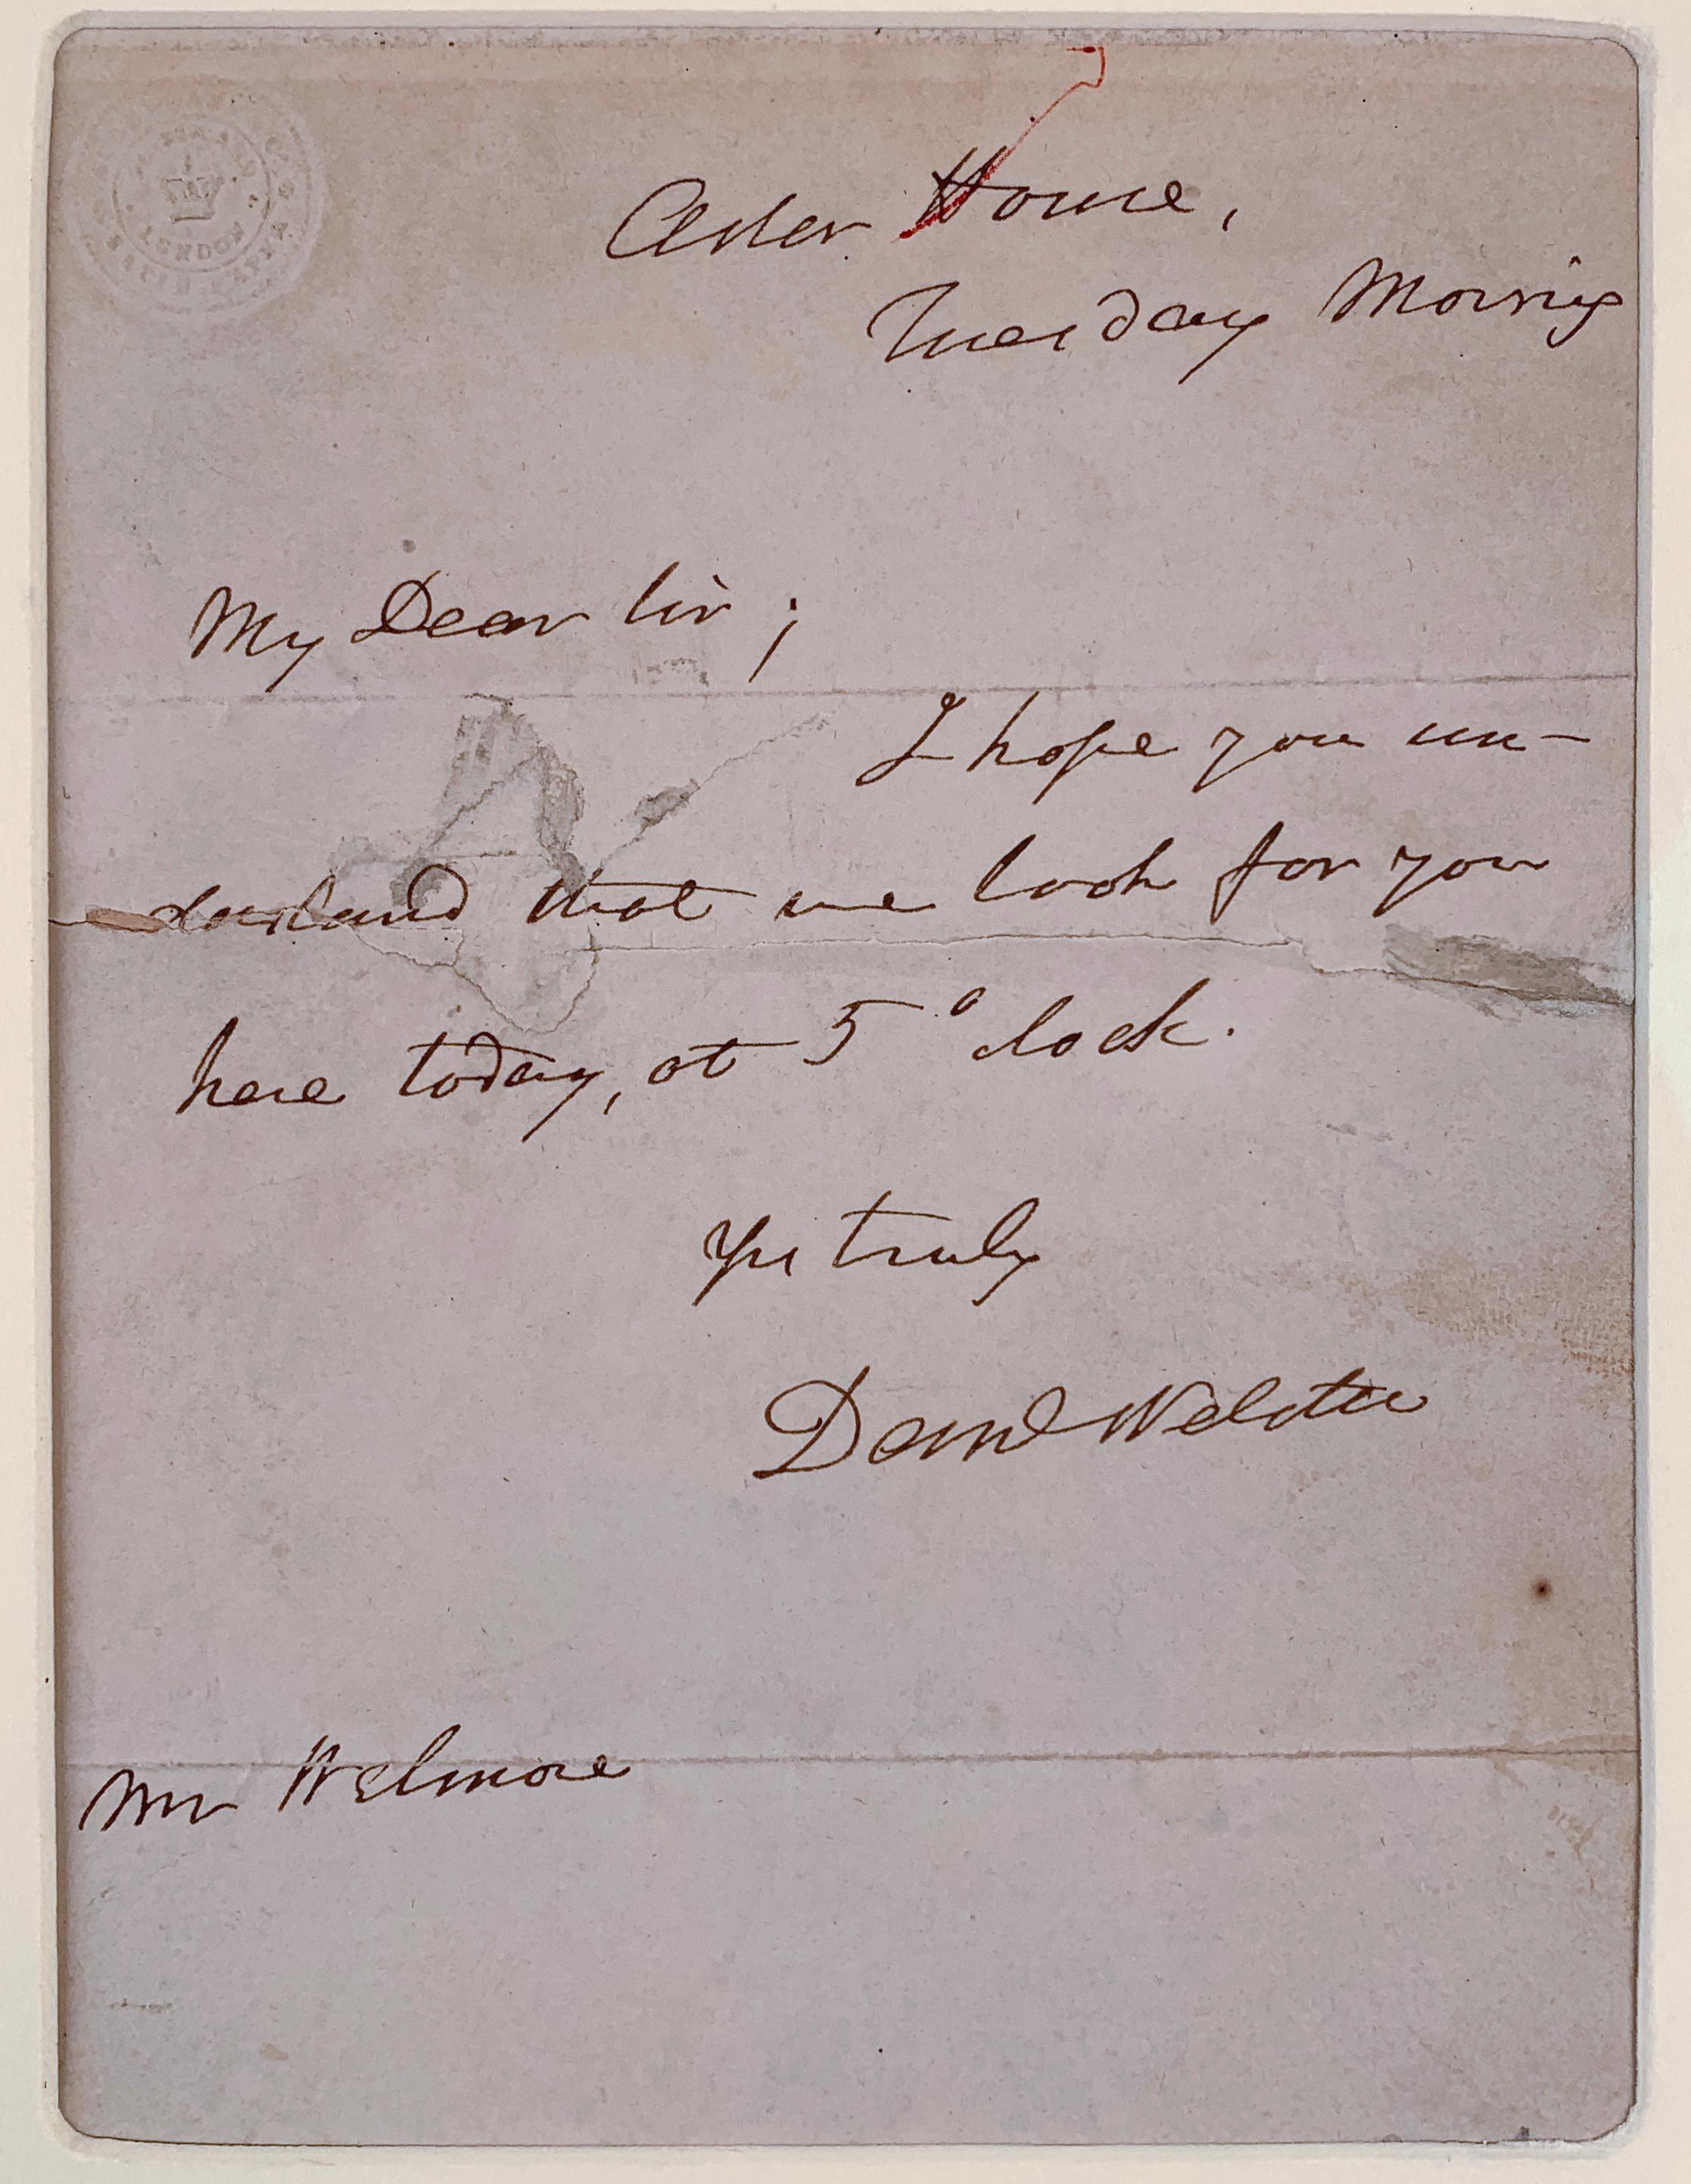 LONDON
Astor House,
Tuesday Morning
My Dear Sir;
I hope you un-
derstand that we look for you
here today, at 5 o'clock.
Yrs truly
Danl Webster
Mr Wetmore